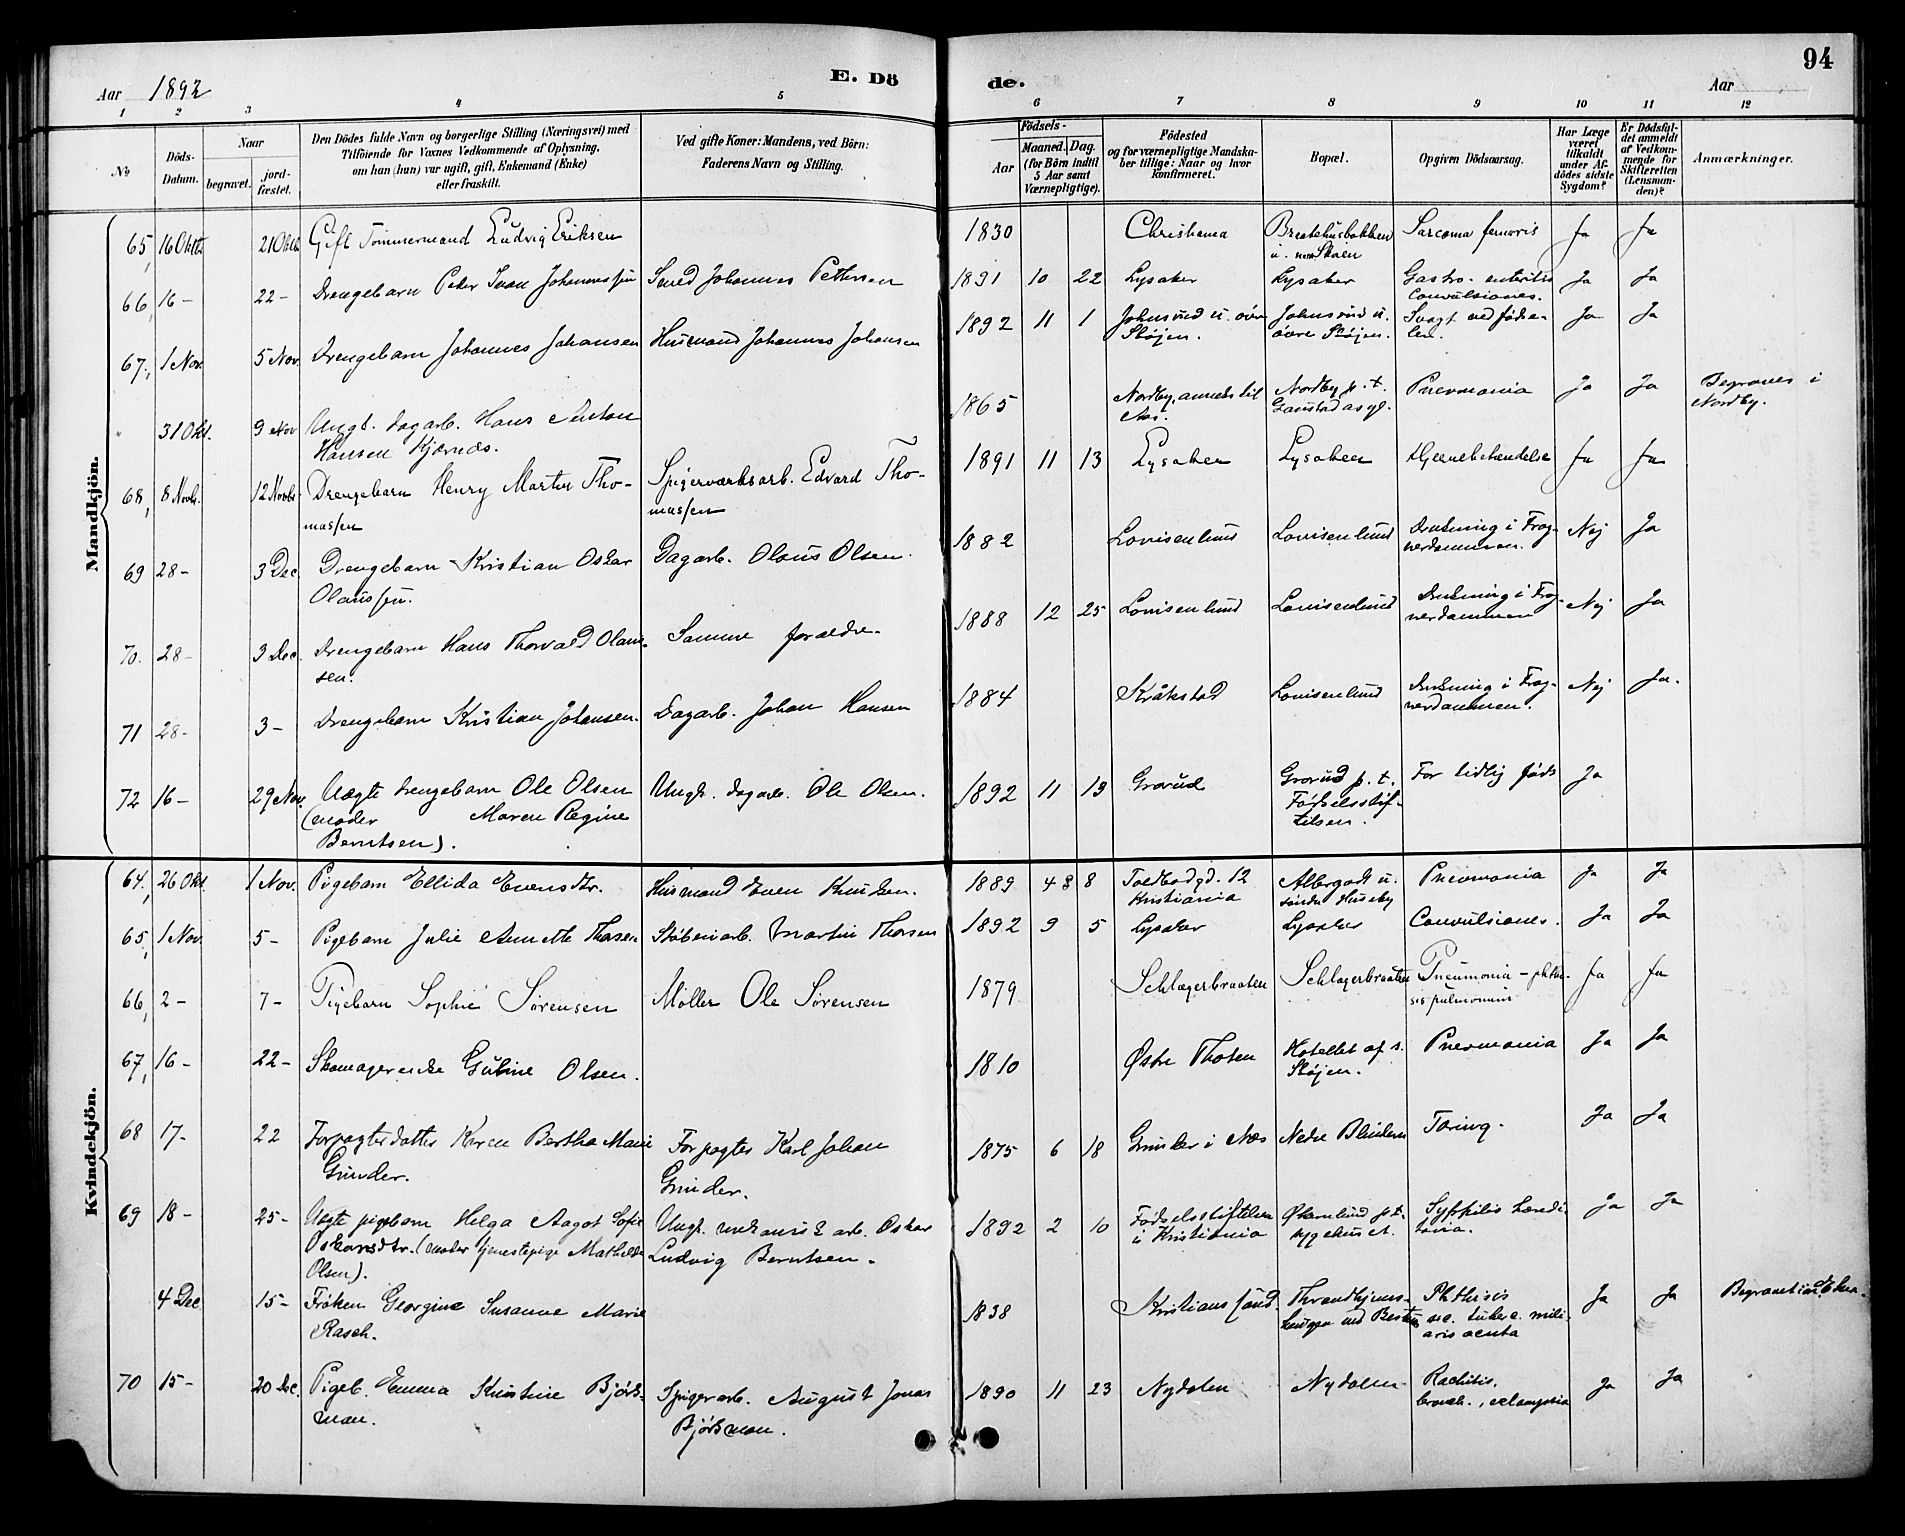 94
E. Dö
de.
Aar 1892
Aar
1 2 3 4 5 6 7 8 9 10 11 12
No
Döds-
Datum.
Naar
begravet.
jord-
fæstet.
Den Dödes fulde Navn og borgerlige Stilling (Næringsvei) med
Tilföiende for Voxnes Vedkommende af Oplysning,
om han (hun) var ugift, gift, Enkemand (Enke)
eller fraskilt.
Ved gifte Koner: Mandens, ved Börn:
Faderens Navn og Stilling.
Födsels-
Aar
Maaned. Dag.
(for Börn indtil
5 Aar samt
Værnepligtige).
Födested
og for værnepligtige Mandska-
ber tillige: Naar og hvor
konfirmeret.
Bopæl.
Opgiven Dödsaarsag.
Har Læge
været
tilkaldt
under Af-
dödes sidste
Sygdom?
Er Dödsfal-
det anmeldt
af Vedkom-
mende for
Skifteretten
(Lensman-
den)?
Anmærkninger.
Mandkjön.
65, 16 Oktb. 21 Oktb. Gift Tömmermand Ludvig Eriksen 1830 Christiania
u. Skøien Sarcoma femoris Ja Ja
66, 16- 22- Drengebarn Peter Ivan Johannessen Johannes Pettersen 1891 10 22 Lysaker Lysaker Gastro-enteritis Ja Ja
Convulsiones.
67, 1 Nov. 5 Nov. Drengebarn Johannes Johansen Husmand Johannes Johansen 1892 11 1 Johnsrud u. övre Johnsrud u. Svagt ved födse- Ja Ja
Støjen. övre Støjen. len.
31 Okt. 9 Nov Ungk. dagarb. Hans Anton 1865 Nordby, anneks til Nordby p.t. Pnevmonia Ja Ja Begraves i
Hansen Kjærnæs. Aas. Gaustad asyl. Nordby.
68, 8 Novb. 12 Novb. Drengebarn Henry Martin Tho- Spigerværksarb. Edvard Tho- 1891 11 13 Lysaker Lysaker Hjernebetændelse Ja Ja
massen massen
69 28- 3 Dec. Drengebarn Kristian Oskar Dagarb. Olaus Olsen. 1882 Lovisenlund Lovisenlund Drukning i Frog- Nej Ja
Olaussen. nerdammen.
70. 28- 3 Dec. Drengebarn Hans Thorvald Olaus- Samme forældre. 1888 12 25 Lovisenlund Lovisenlund Drukning i Frog- Nej Ja
sen. nerdammen
71 28- 3- Drengebarn Kristian Johansen. Dagarb. Johan Hansen 1884 Kråkstad Lovisenlund Drukning i Frog- Nej Ja.
nerdammen.
72 16- 29 Nov. Uægte drengebarn Ole Olsen Ungk. dagarb. Ole Olsen. 1892 11 13 Grorud Grorud p.t. For tidlig født Ja
(moder Maren Regine Fødselsstif-
Berntsen). telsen.
Kvindekjön.
64, 26 Okt. 1 Nov. Pigebarn Ellida Evensdtr. Husmand Even Knudsen. 1889 8 Toldbodgd. 12 u. Pnevmonia Ja Ja
Kristiania søndre Huseby
65, 1 Nov. 5- Pigebarn Julie Annette Thorsen Støberiarb. Martin Thorsen 1892 9 5 Lysaker Lysaker Convulsiones. Ja Ja
66, 2- 7- Pigebarn Sophie Sørensen Møller Ole Sørensen 1879 Schlagerbraaten Schlagerbraaten Pneumonia - phthi- Ja Ja
sis pulmonum
67, 16- 22- Skomagerenke Guline Olsen. 1810 Østre Thoten Hotellet af s. Pnevmonia Ja Ja
Støjen.
68 17- 22 Forpagterdatter Karen Bertha Marie Forpagter Karl Johan 1875 6 18 Grinder i Næs Nedre Blindern Tæring. Ja Ja
Grinder. Grinder.
69 18- 25- Uægte pigebarn Helga Aagot Sofie Ungk. mekanisk arb. Oskar 1892 2 10 Fødselsstiftelsen p.t. Syphilis heredi- Ja Ja
Oskarsdtr. (moder tjenestepige Mathilde Ludvig Berntsen. i Kristiania sygehuset. taria.
Olsen).
4 Dec 15- Frøken Georgine Susanne Marie 1838 Kristianssund. Throndhjems- Phthisis Ja Ja
Rasch. ved sec. tuberc. mili-
aris acuta
70 15- 20 Dec. Pigeb. Emma Kristine Björk- Spigerarb. August Jonas 1890 11 23 Nydalen Nydalen Rachitis, Ja Ja
man. Björkman. bronch., eclampsia